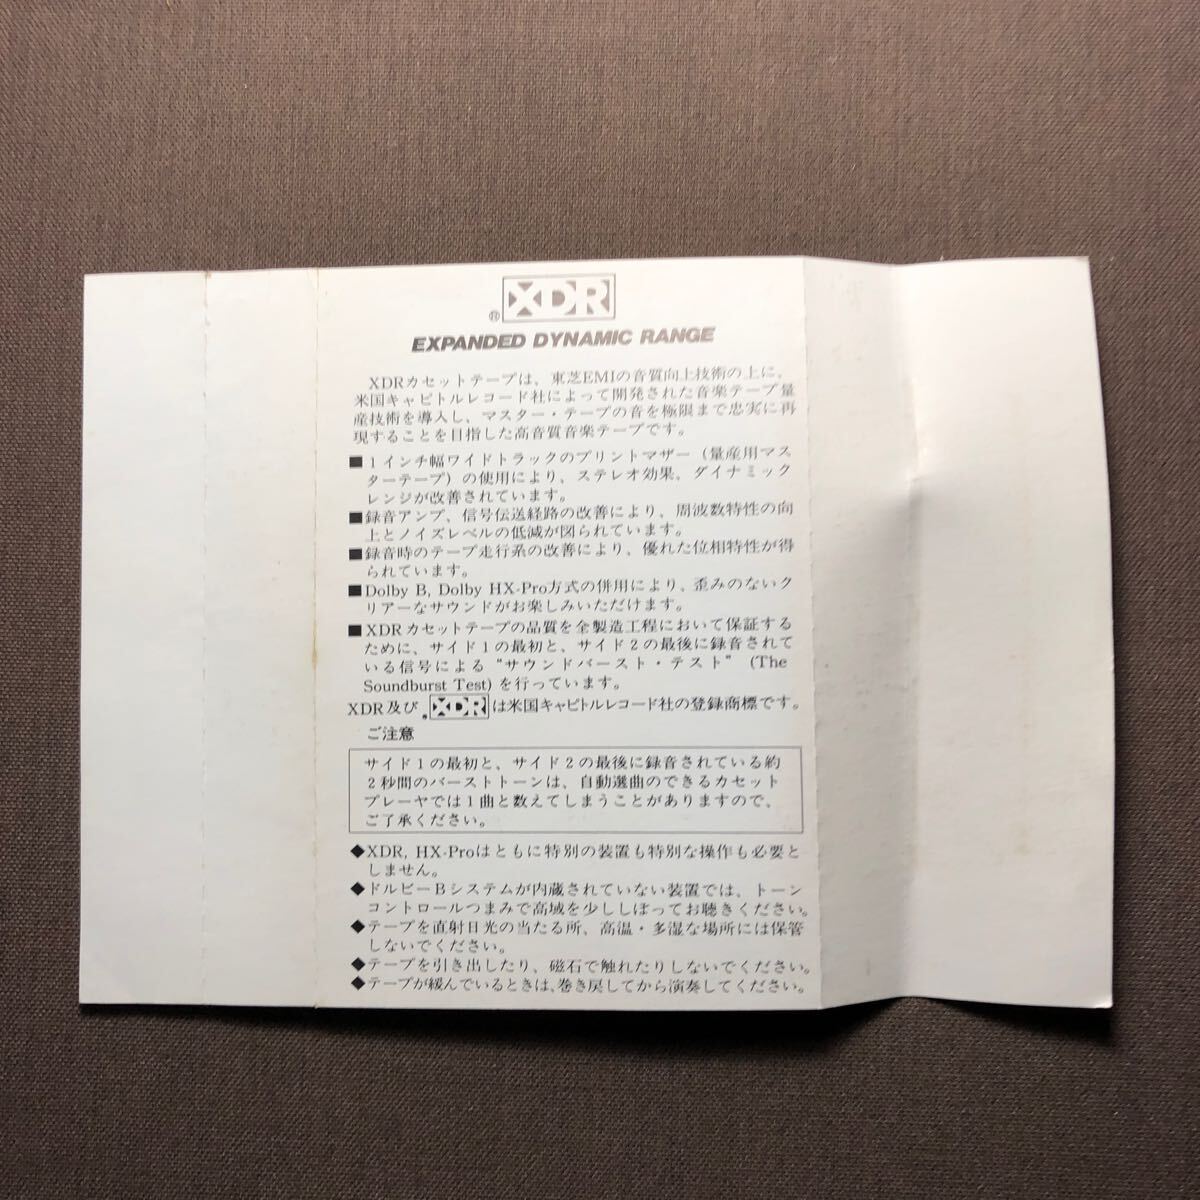 ® XDR
EXPANDED DYNAMIC RANGE
XDRカセットテープは、東芝EMIの音質向上技術の上に、
米国キャピトルレコード社によって開発された音楽テープ量
産技術を導入し、マスター・テープの音を極限まで忠実に再
現することを目指した高音質音楽テープです。
■1インチ幅ワイドトラックのプリントマザー（量産用マス
ターテープ）の使用により、ステレオ効果、ダイナミック
レンジが改善されています。
■録音アンプ、信号伝送経路の改善により、周波数特性の向
上とノイズレベルの低減が図られています。
■録音時のテープ走行系の改善により、優れた位相特性が得
られています。
■Dolby B, Dolby HX-Pro方式の併用により、歪みのないク
リアーなサウンドがお楽しみいただけます。
■XDRカセットテープの品質を全製造工程において保証する
ために、サイド1の最初と、サイド2の最後に録音されて
いる信号による“サウンドバースト・テスト” (The
Soundburst Test) を行っています。
XDR及び ® XDR は米国キャピトルレコード社の登録商標です。
ご注意
サイド1の最初と、サイド2の最後に録音されている約
2秒間のバーストトーンは、自動選曲のできるカセット
プレーヤでは1曲と数えてしまうことがありますので、
ご了承ください。
◆XDR, HX-Proはともに特別の装置も特別な操作も必要と
しません。
◆ドルビーBシステムが内蔵されていない装置では、トーン
コントロールつまみで高域を少ししぼってお聴きください。
◆テープを直射日光の当たる所、高温・多湿な場所には保管
しないでください。
◆テープを引き出したり、磁石で触れたりしないでください。
◆テープが緩んでいるときは、巻き戻してから演奏してください。